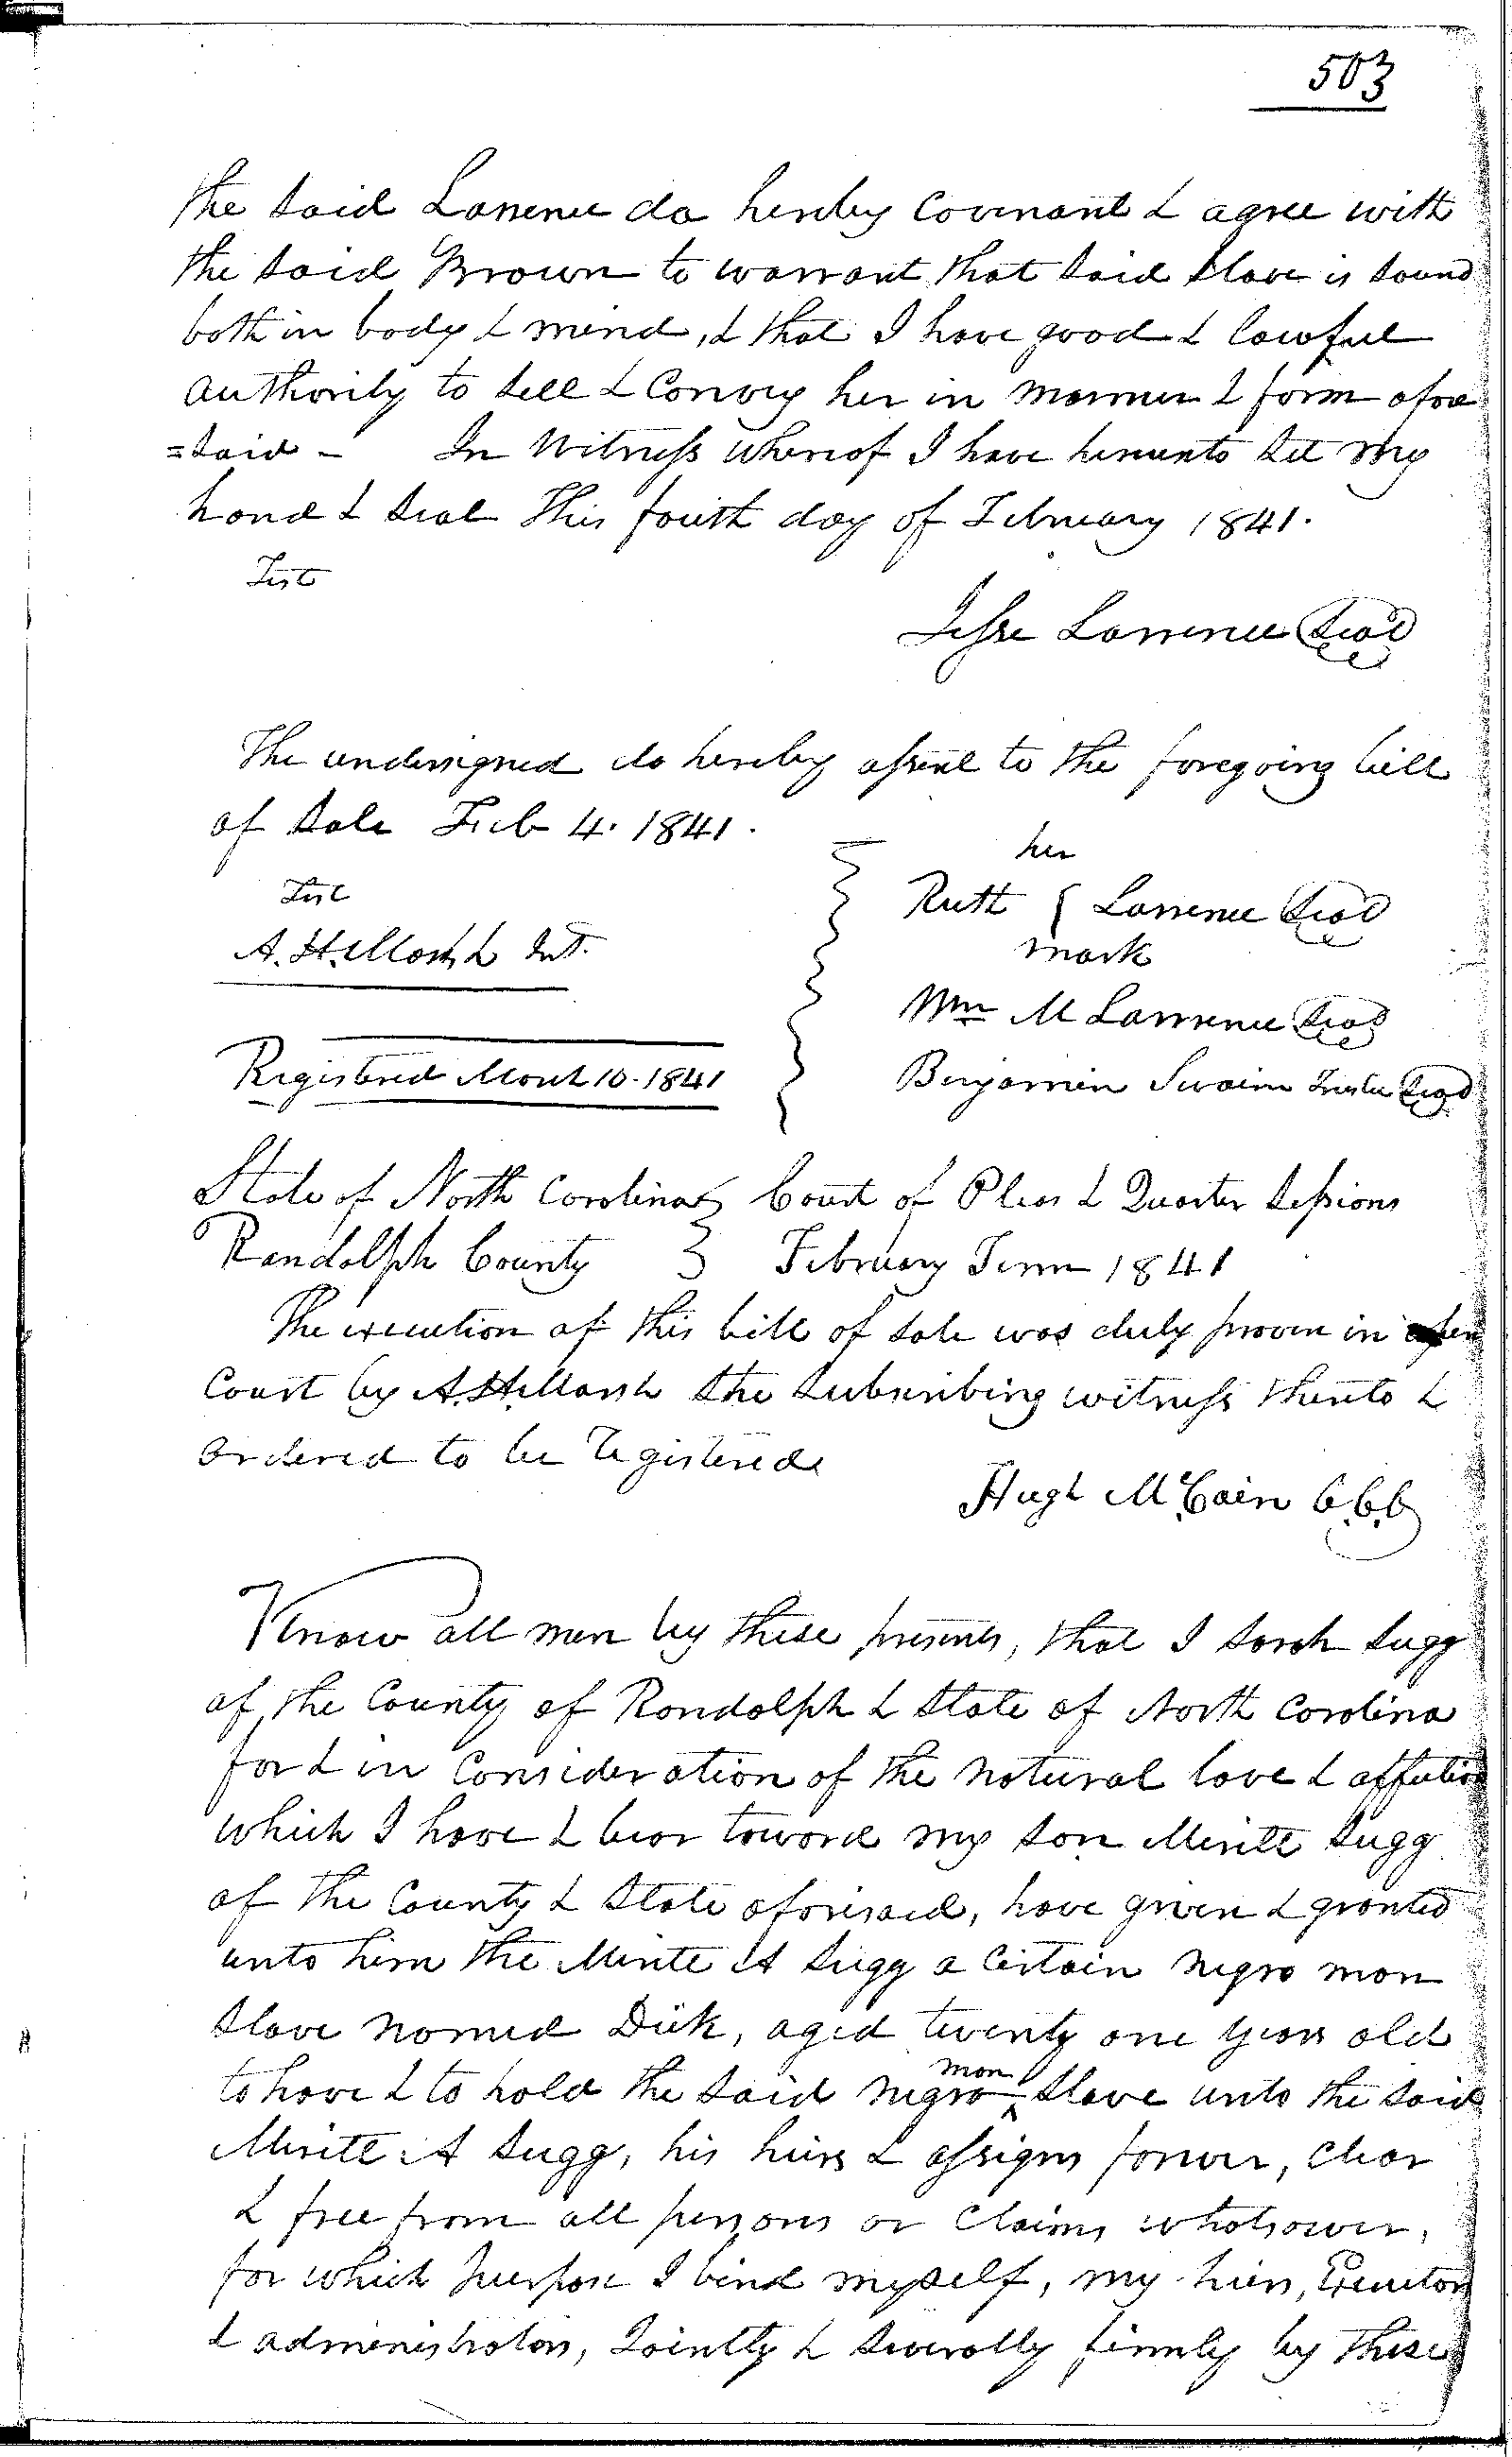 503
the said Lorrence do hereby Covenant & agree with
the said Brown to warrant that said slave is sound
both in body & mind, & that I have good & lawful
authority to sell & Convey her in manner & form afore
=said - In Witness whereof I have hereunto set my
hand & seal This fourth day of February 1841.
Test
Jesse Lorrence Seal
The undersigned do hereby assent to the foregoing bill
of sale Feb 4. 1841.
her
Test
Ruth { Lorrence Seal
A. H. Marsh Int.
mark
Wm M Lorrence Seal
Registered March 10. 1841
Benjamin Swaim Trustee Seal
State of North Carolina } Court of Pleas & Quarter Sessions
Randolph County } February Term 1841
The execution of this bill of sale was duly proven in open
Court by A. H. Marsh the subscribing witness thereto &
ordered to be registered
Hugh McCain C.C.C
Know all men by these presents, that I Sarah Sugg
of the County of Randolph & State of North Carolina
for & in Consideration of the natural love & affection
which I have & bear toward my son Meritt Sugg
of the County & State aforesaid, have given & granted
unto him the Merite A Sugg a Certain negro man
slave named Dick, aged twenty one years old
man
to have & to hold the said negro ^ slave unto the said
Merite A Sugg, his heirs & assigns forever, clear
& free from all persons or Claims whatsoever,
for which purpose I bind myself, my heirs, Executors
& administrators, Jointly & severally firmly by these